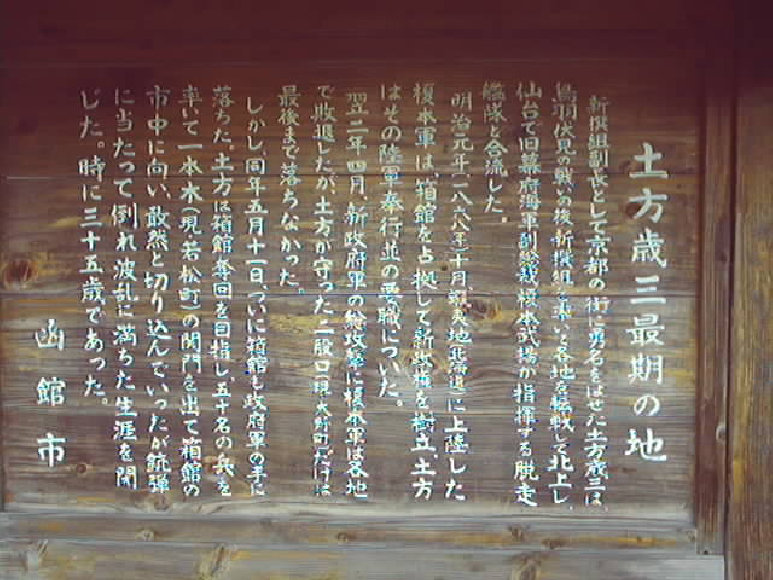 土方歳三最期の地
新撰組副長として京都の街に勇名をはせた土方歳三は、
鳥羽伏見の戦いの後、新撰組を率いて各地を転戦して北上し、
仙台で旧幕府海軍副総裁榎本武揚が指揮する脱走
艦隊と合流した。
明治元年(一八六八年)十月、蝦夷地(北海道)に上陸した
榎本軍は、箱館を占拠して新政権を樹立、土方
はその陸軍奉行並の要職についた。
翌二年四月、新政府軍の総攻撃に榎本軍は各地
で敗退したが、土方が守った二股口(現大野町)だけは
最後まで落ちなかった。
しかし同年五月十一日、ついに箱館も政府軍の手に
落ちた。土方は箱館奪回を目指し、五十名の兵を
率いて一本木(現若松町)の関門を出て箱館の
市中に向い、敢然と切り込んでいったが、銃弾
に当たって倒れ波乱に満ちた生涯を閉
じた。時に三十五歳であった。
函館市